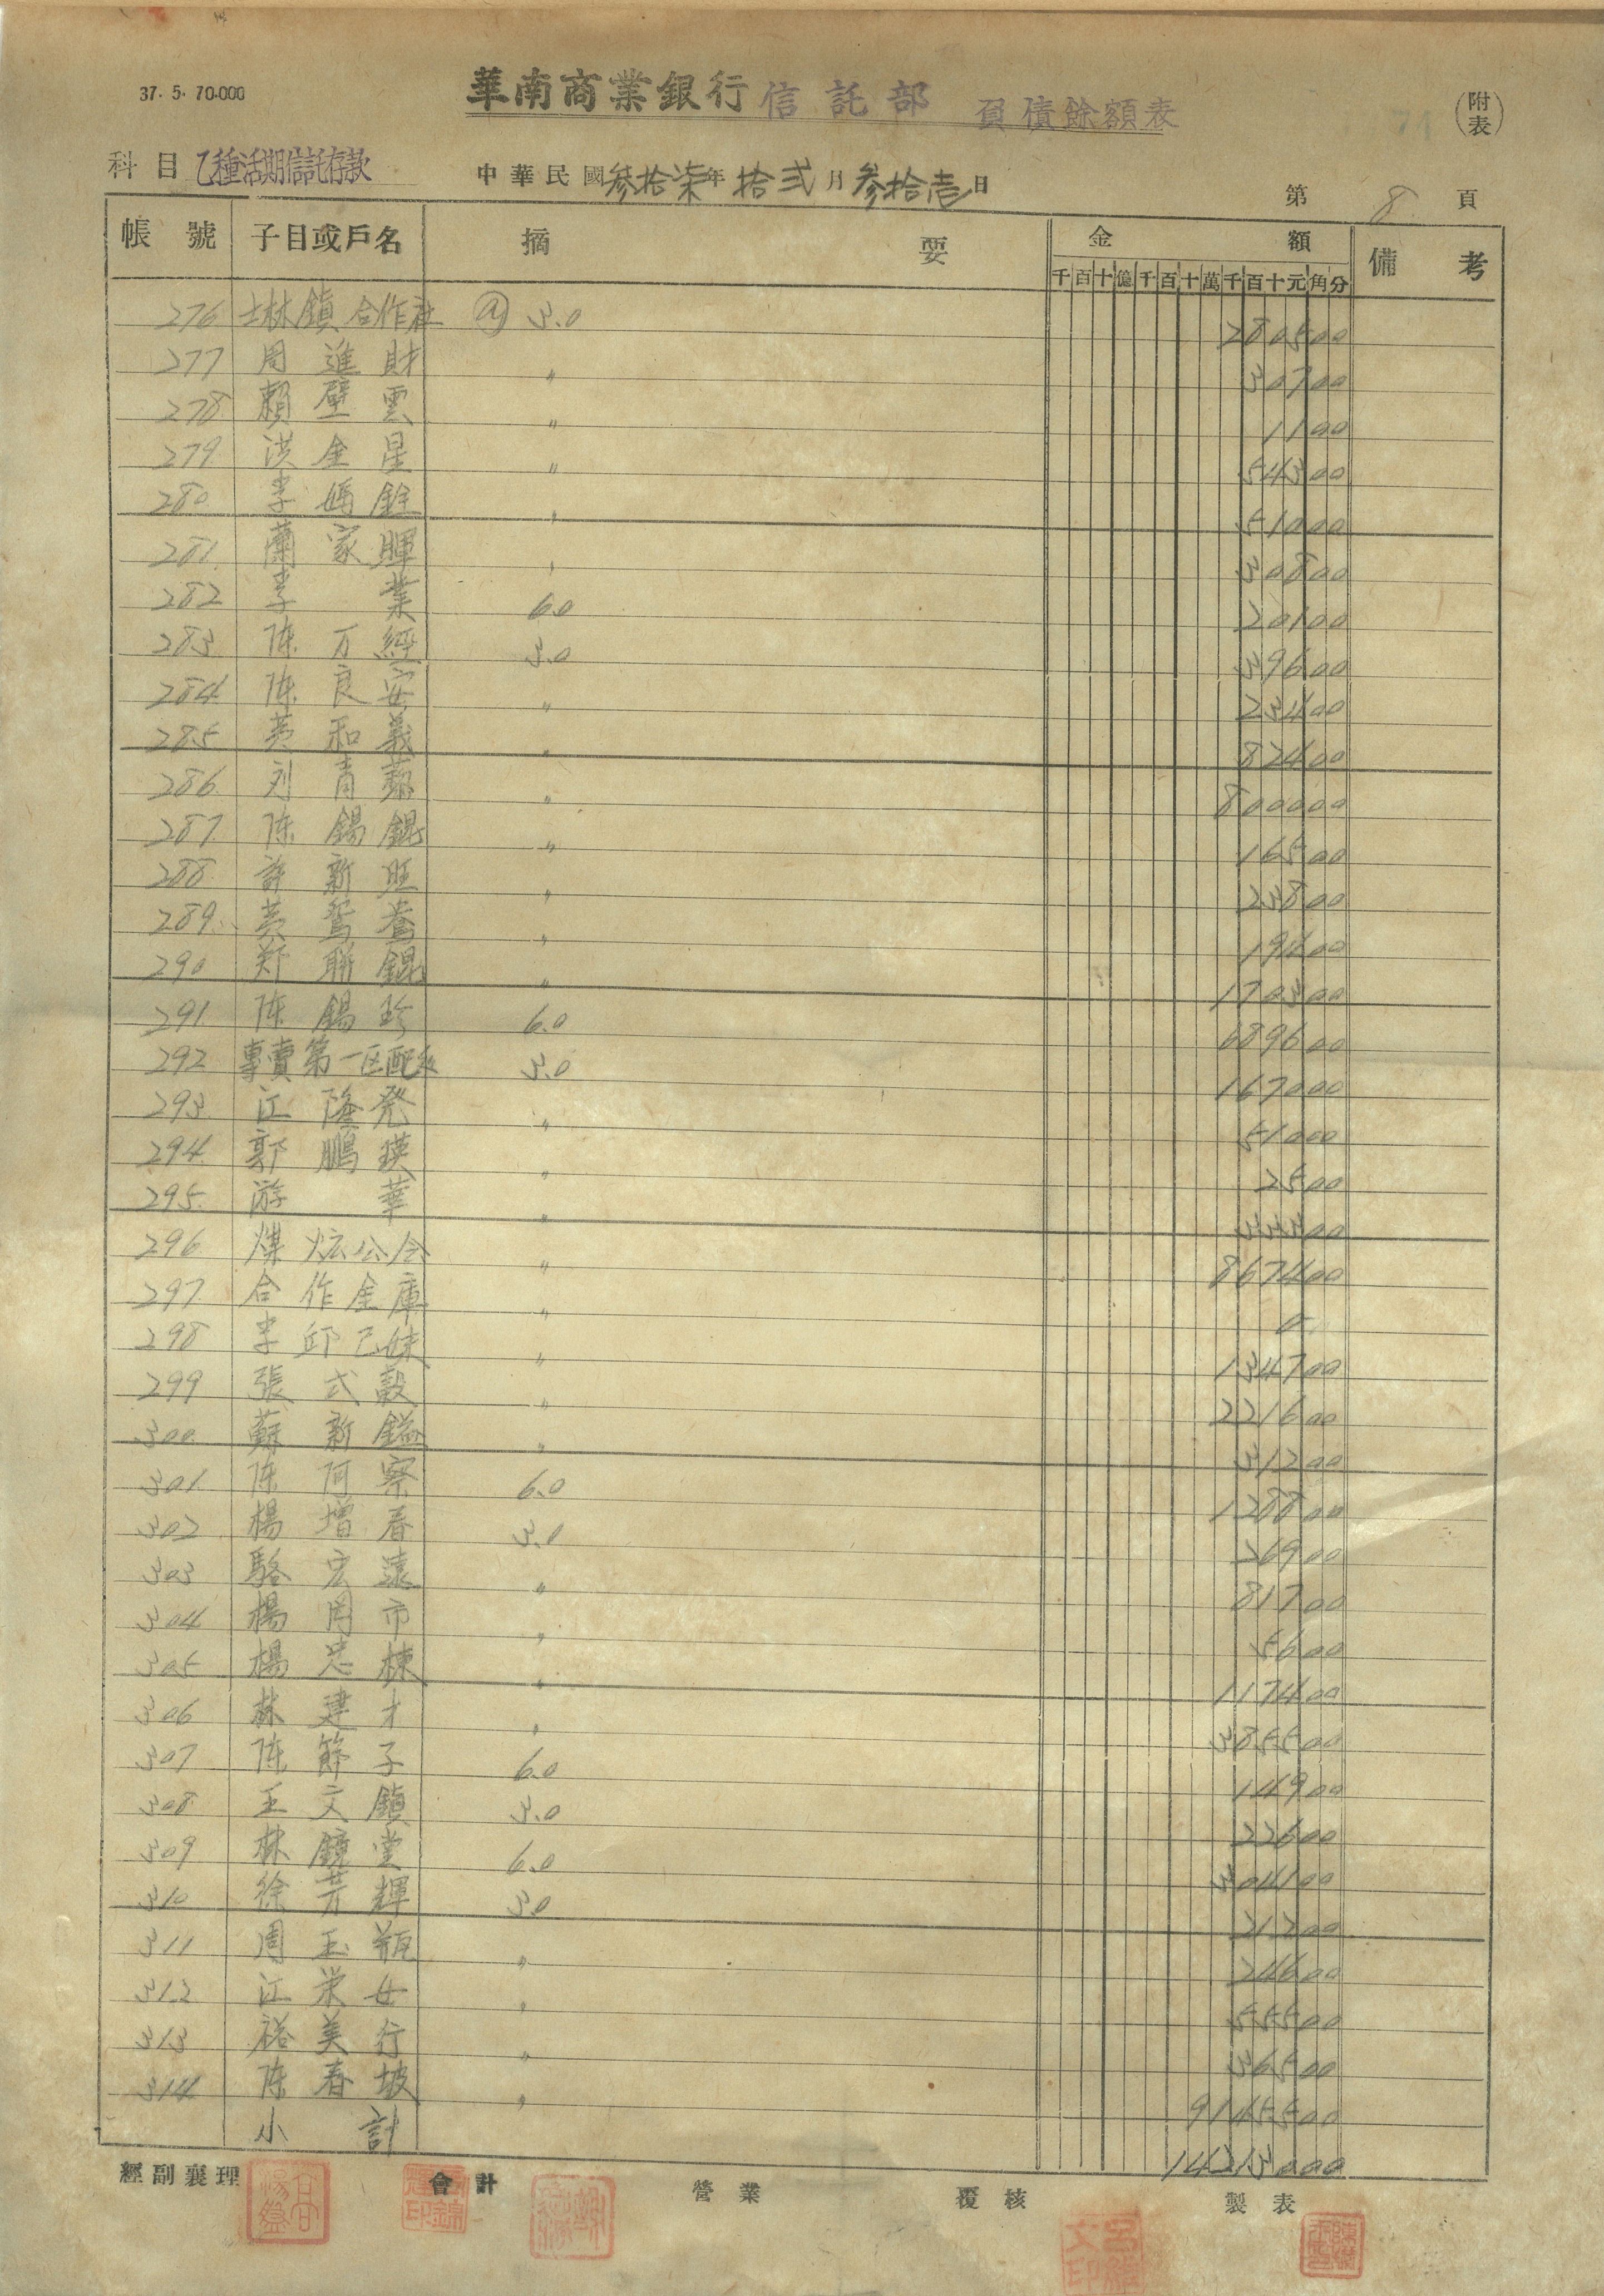 37. 5. 70.000
華南商業銀行 信託部 負債餘額表
(附表)
74
科目 乙種活期信託存款 中華民國叁拾柒年拾弍月叁拾壱日 第8頁
帳號 子目或戶名 摘要 金額 備考
千百十億千百十萬千百十元角分
276 士林鎮合作社 @ 3.0 280500
277 周進財 〃 30700
278 賴壁雲 〃 1100
279 洪金星 〃 54300
280 李媽銓 〃 51000
281 蘭家暉 〃 30800
282 李業 6.0 20100
283 陈万經 3.0 39600
284 陈良安 〃 23400
285 黃和義 〃 82400
286 刘青 〃 800000
287 陈錫錕 〃 16500
288 許新旺 〃 23800
289 黃鴛鴦 〃 19400
290 郑联錕 〃 170300
291 陈錫珍 6.0 689600
292 專賣第一区配 3.0 167000
293 江隆発 〃 51000
294 郭鵬瑛 〃 2500
295 游華 〃 33300
296 煤炭公会 〃 867400
297 合作金庫 〃 0
298 李邱己妹 〃 134700
299 張式設 〃 221600
300 蘇新鎰 〃 31200
301 陈阿察 6.0 128800
302 楊增春 3.0 26900
303 駱宏遠 〃 81700
304 楊周市 〃 5600
305 楊忠棟 〃 117400
306 林建才 〃 385500
307 陈節子 6.0 14900
308 王文鎮 3.0 22600
309 林鏡堂 6.0 304100
310 徐芳輝 3.0 21200
311 周玉瓶 〃 24600
312 江栄女 〃 55500
313 裕美行 〃 36500
314 陈春坡 〃 9145500
小計 14213000
經副襄理 會計 營業 覆核 製表